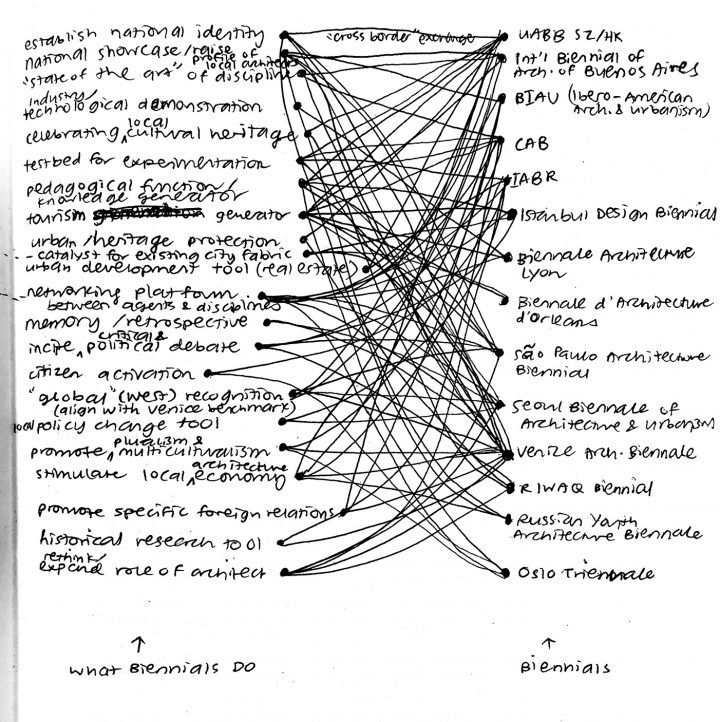 establish national identity
national showcase/raise profile of local architects
"state of the art" of discipline
industry/
technological demonstration
celebrating local cultural heritage
testbed for experimentation
pedagogical function/
knowledge generator
tourism generator
urban/heritage protection
- catalyst for existing city fabric
urban development tool (real estate)
networking platform
between agents & disciplines
memory/retrospective
incite critical & political debate
citizen activation
"global" (west) recognition
(align with venice benchmark)
local policy change tool
promote pluralism & multiculturalism
stimulate local architecture economy
promote specific foreign relations
historical research tool
rethink/
expand role of architect
↑
what Biennials DO
"cross border" exchange
UABB SZ/HK
Int'l Biennial of
Arch. of Buenos Aires
BIAU (Ibero-American
Arch. & urbanism)
CAB
IABR
Istanbul Design Biennial
Biennale Architecture
Lyon
Biennale d'Architecture
d'Orleans
São Paulo Architecture
Biennial
Seoul Biennale of
Architecture & Urbanism
Venice Arch. Biennale
RIWAQ Biennial
Russian Youth
Architecture Biennale
Oslo Triennale
↑
Biennials